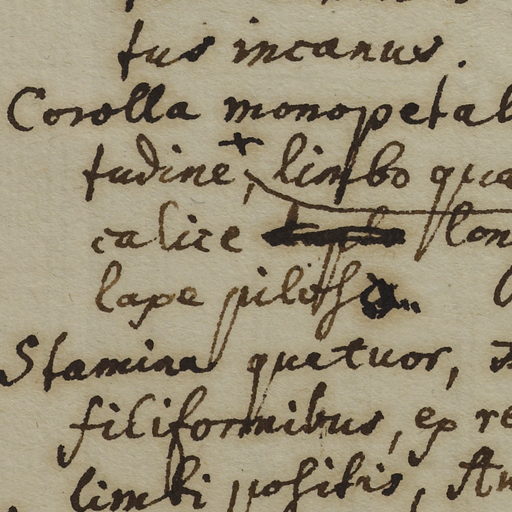 tus incanus.
Corolla monopetal
tudine, limbo qua
calice lon
lape pilis
Stamina quatuor,
filiformibus, ex re
limbi positis, An